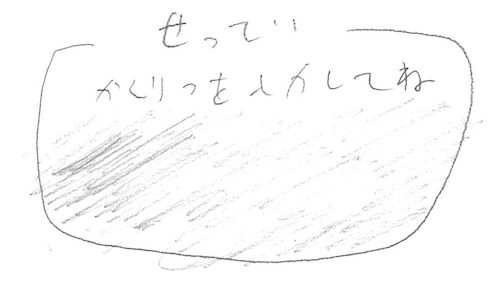 せってい
かくりつをいかしてね